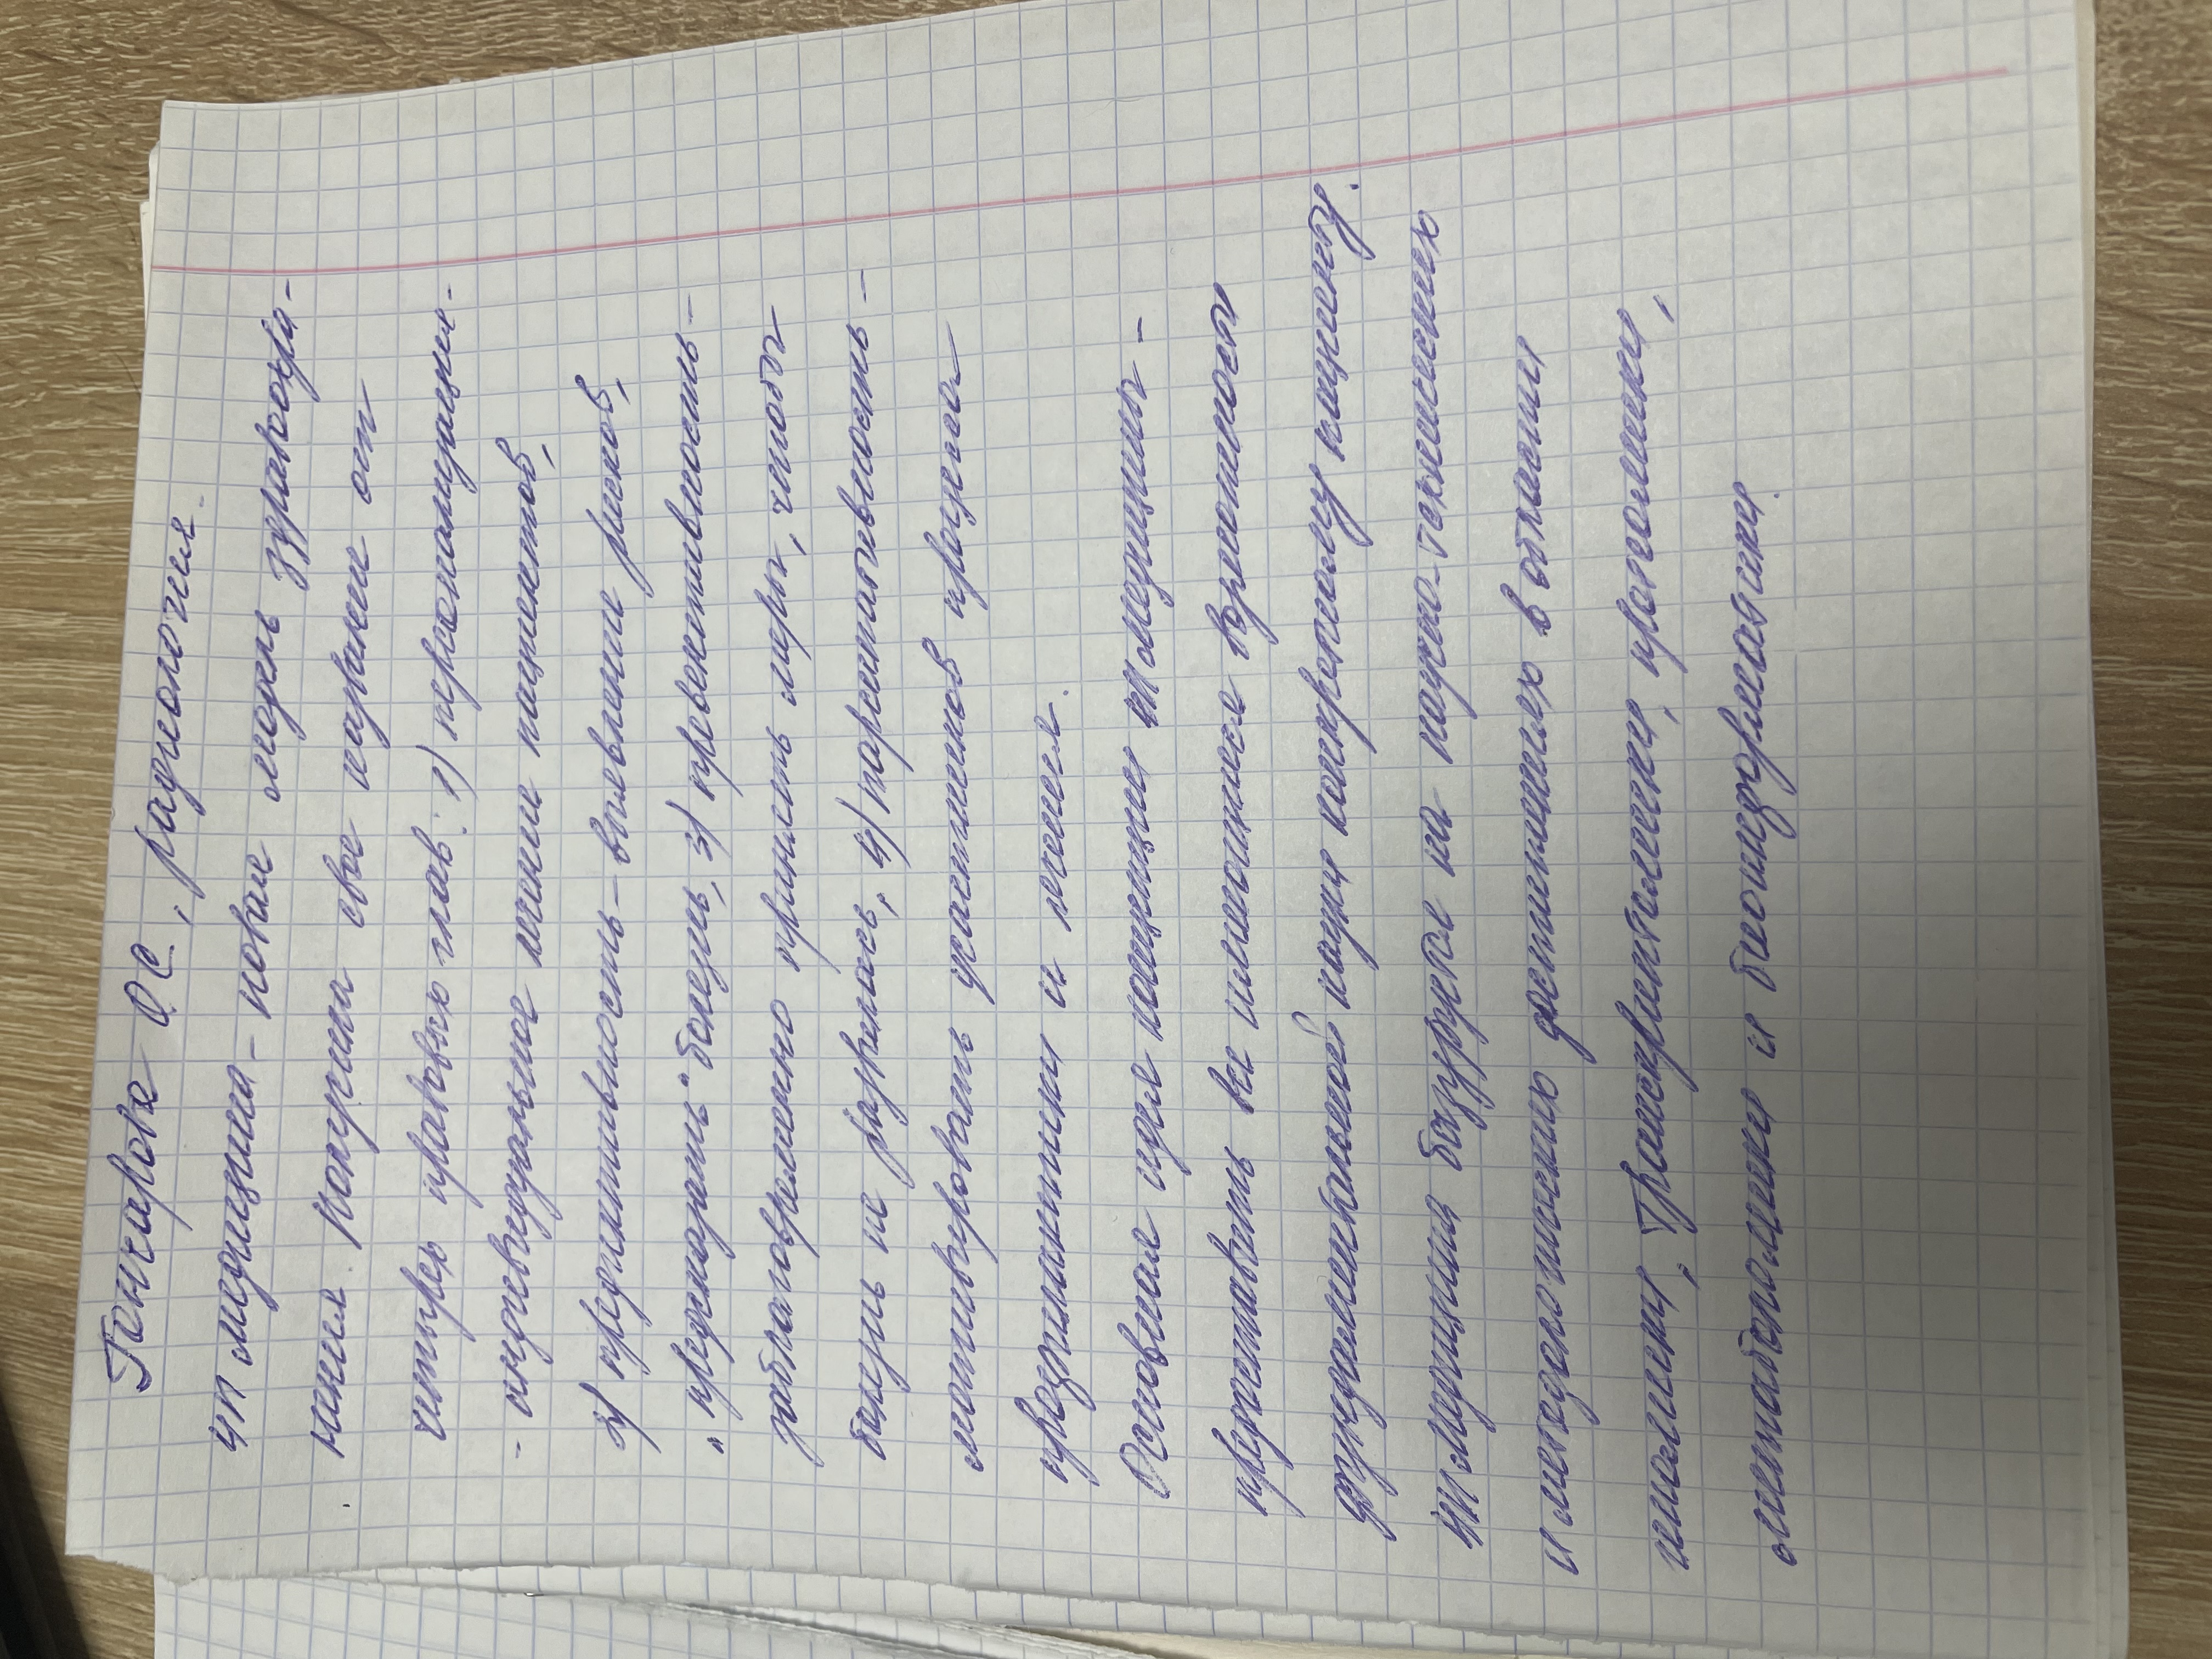 Гончарова О.С., радиология.
4П медицина - новая модель здравоохра-
нения. Концепция свое название от
четырех правовых глав: 1) персонализация -
- индивидуальное лечение пациентов,
2) предиктивность - выявление рисков,
"предикторить" болезнь, 3) превентивность -
заблаговременно принять меры, чтобы
болезнь не развилась, 4) парситативность -
мотивировать участников процесса
профилактики и лечения.
Основная идея концепции 4П медицины -
предоставить все имеющиеся возможности
фундаментальной науки конкретному пациенту.
4П медицина базируется на научно-технических
и методологических достижениях в области
геномики, транскриптомики, протеомики,
метаболомики и биоинформатики.